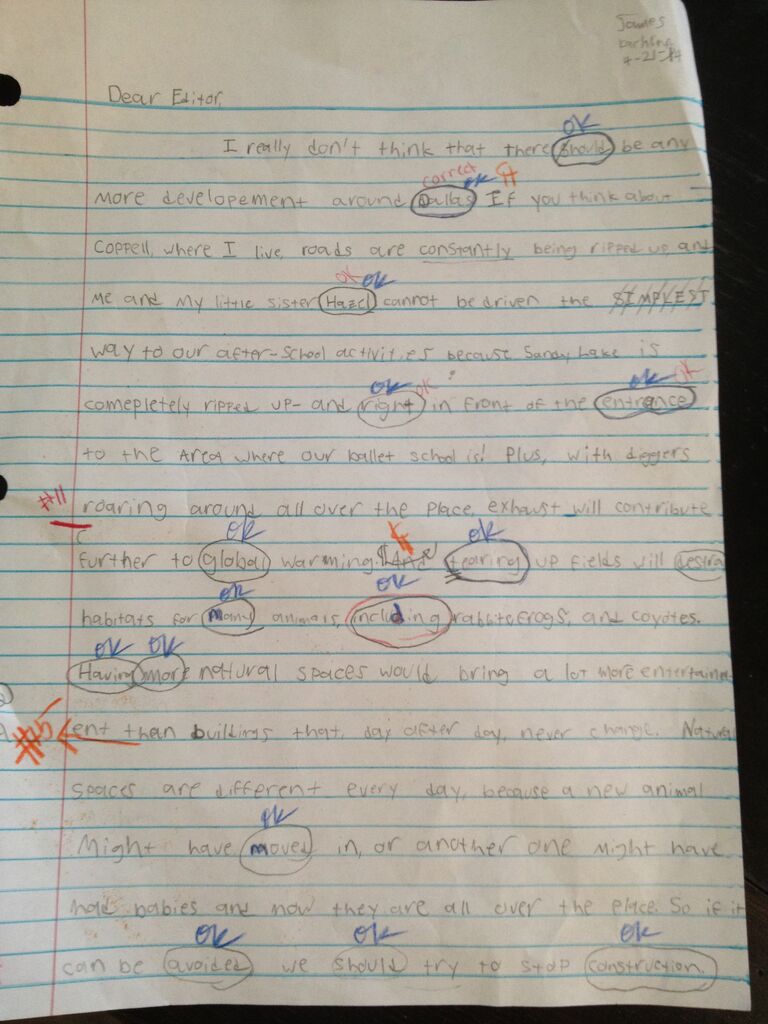 James
4-21-14
Dear Editor,
OK
I really don't think that there should be any
correct OK
more developement around Dallas If you think about
Coppell, where I live, roads are constantly being ripped up, and
OK OK
me and my little sister Hazel cannot be driven the SIMPLEST
way to our after-school activities because Sandy Lake is
OK OK OK OK
comepletely ripped up- and right in front of the entrance
to the Area where our ballet school is! Plus, with diggers
#11 roaring around all over the place, exhaust will contribute
OK OK
further to global warming. And tearing up fields will destro
OK OK
habitats for many animals, including rabbits, frogs, and coyotes.
OK OK
Having more natural spaces would bring a lot more entertainm
#5 ent than buildings that, day after day, never change. Natural
spaces are different every day, because a new animal
OK
Might have moved in, or another one might have
had babies and now they are all over the place. So if it
OK OK OK
can be avoided we should try to stop construction.